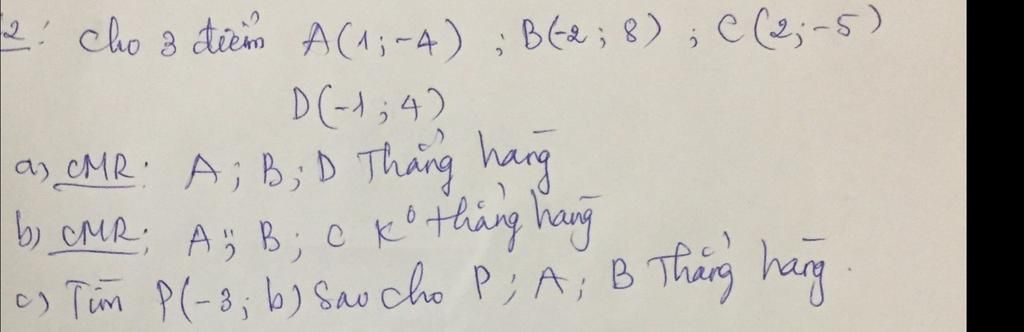 2: Cho 3 điểm A(1;-4) ; B(-2; 8) ; C(2;-5)
D(-1; 4)
a) CMR: A; B; D Thẳng hàng
b) CMR: A; B; C K° thẳng hàng
c) Tìm P(-3; b) Sao cho P; A; B Thẳng hàng.